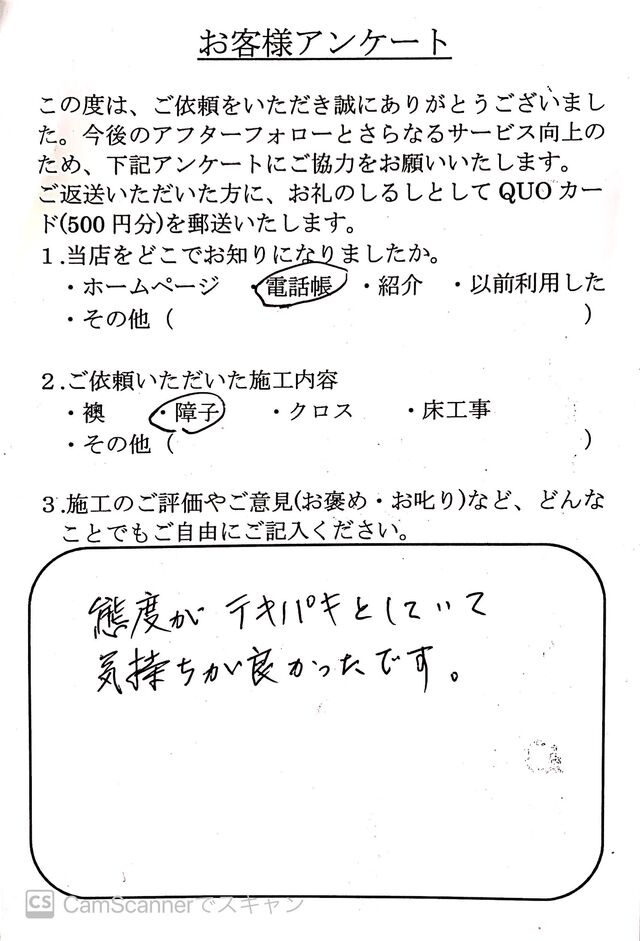 お客様アンケート
この度は、ご依頼をいただき誠にありがとうございまし
た。今後のアフターフォローとさらなるサービス向上の
ため、下記アンケートにご協力をお願いいたします。
ご返送いただいた方に、お礼のしるしとして QUO カー
ド(500 円分)を郵送いたします。
１.当店をどこでお知りになりましたか。
・ホームページ ・電話帳 ・紹介 ・以前利用した
・その他（ ）
２.ご依頼いただいた施工内容
・襖 ・障子 ・クロス ・床工事
・その他（ ）
３.施工のご評価やご意見(お褒め・お叱り)など、どんな
ことでもご自由にご記入ください。
態度が テキパキとしていて
気持ちが良かったです。
CS CamScannerでスキャン